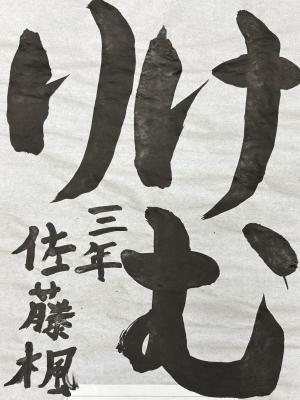 けむ
り
三年
佐藤楓